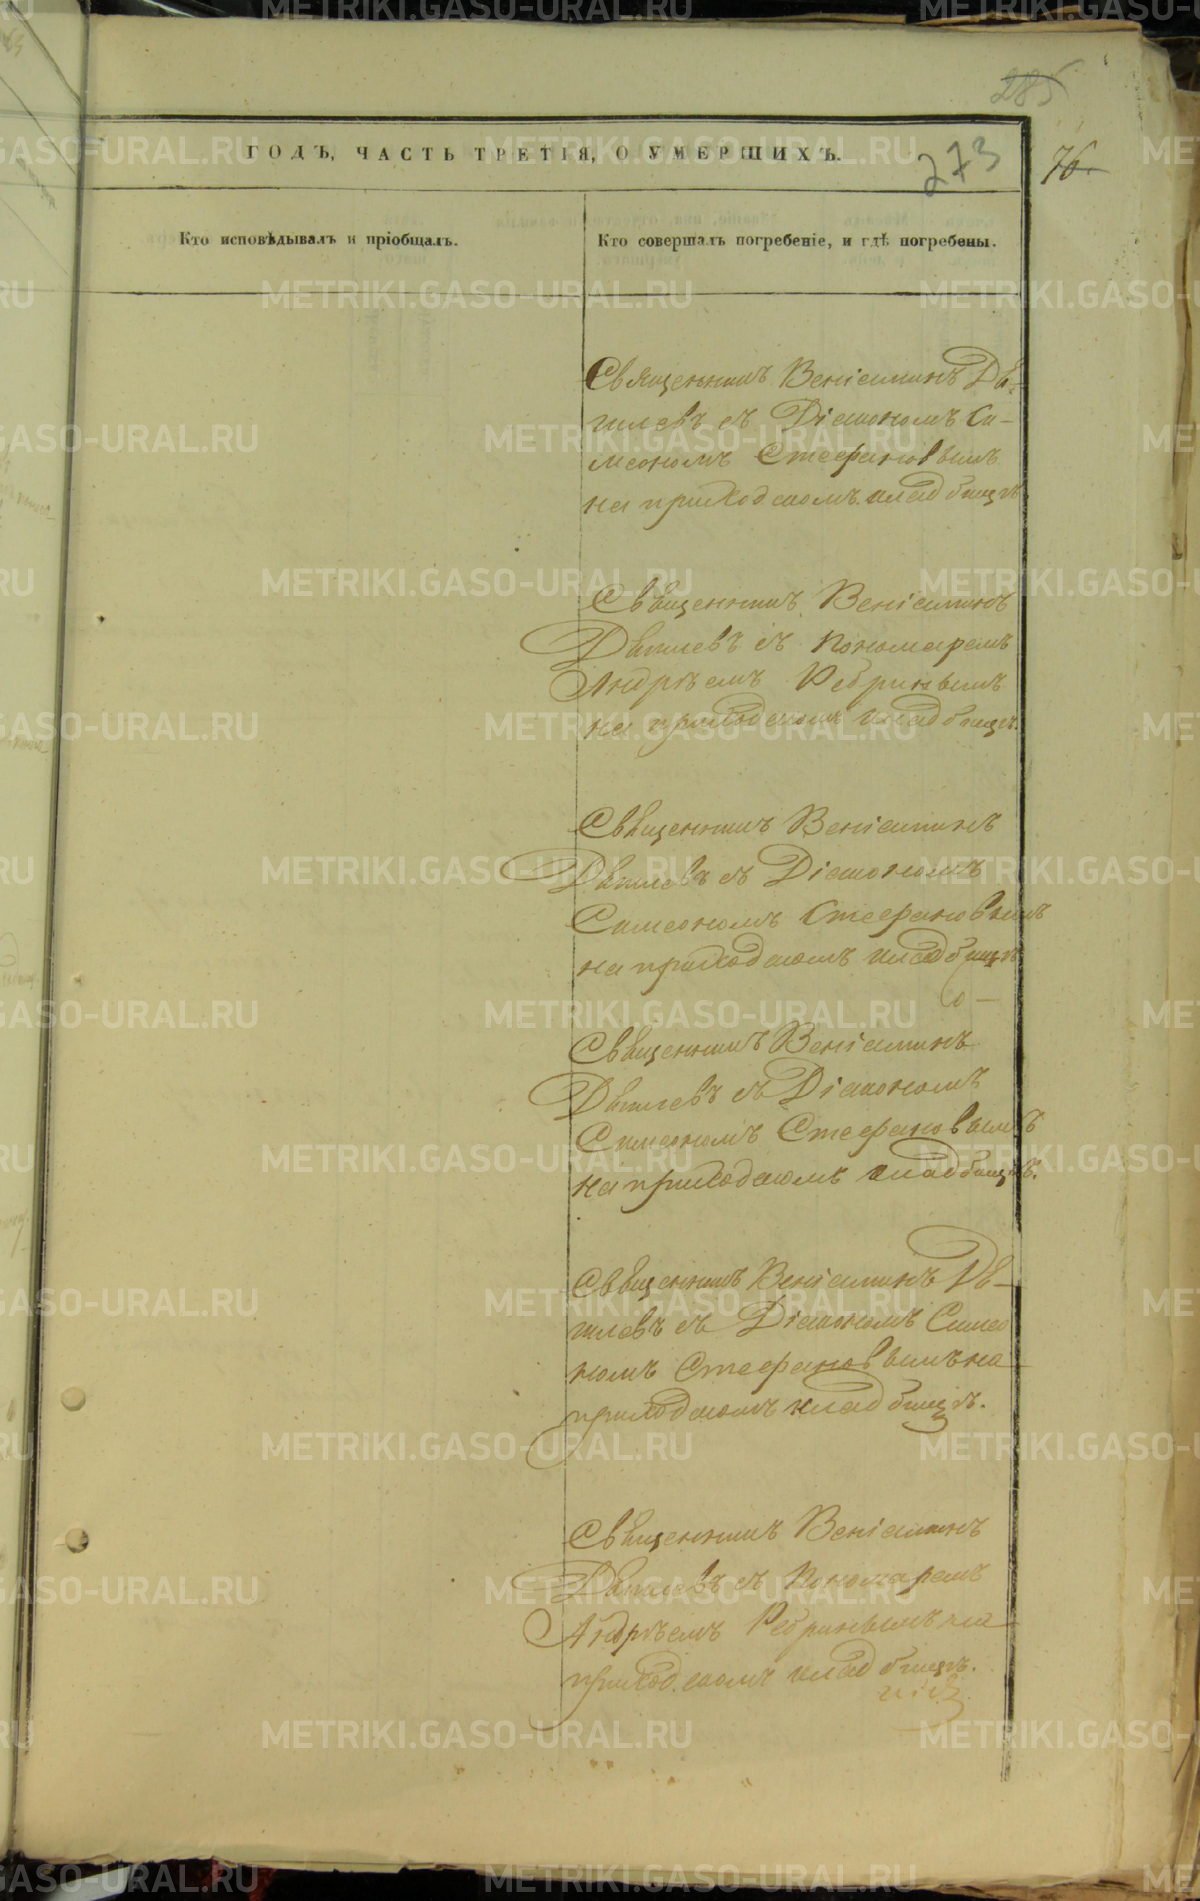 285
ГОДЪ, ЧАСТЬ ТРЕТІЯ, О УМЕРШИХЪ.
273
76.
Кто исповѣдывалъ и пріобщалъ.
Кто совершалъ погребеніе, и гдѣ погребены.
Священникъ Веніаминъ
съ Діакономъ Си-
меономъ Стефановымъ
на приходскомъ кладбищѣ
Священникъ Веніаминъ
съ Пономаремъ
Андрѣемъ Ребринымъ
на приходскомъ кладбищѣ.
Священникъ Веніаминъ
съ Діакономъ
Симеономъ Стефановымъ
на приходскомъ кладбищѣ
Священникъ Веніаминъ
съ Діакономъ
Симеономъ Стефановымъ
на приходскомъ кладбищѣ.
Священникъ Веніаминъ
съ Діакономъ Симео
номъ Стефановымъ на
приходскомъ кладбищѣ.
Священникъ Веніаминъ
съ Пономаремъ
Андрѣемъ Ребринымъ на
приходскомъ кладбищѣ.
METRIKI.GASO-URAL.RU